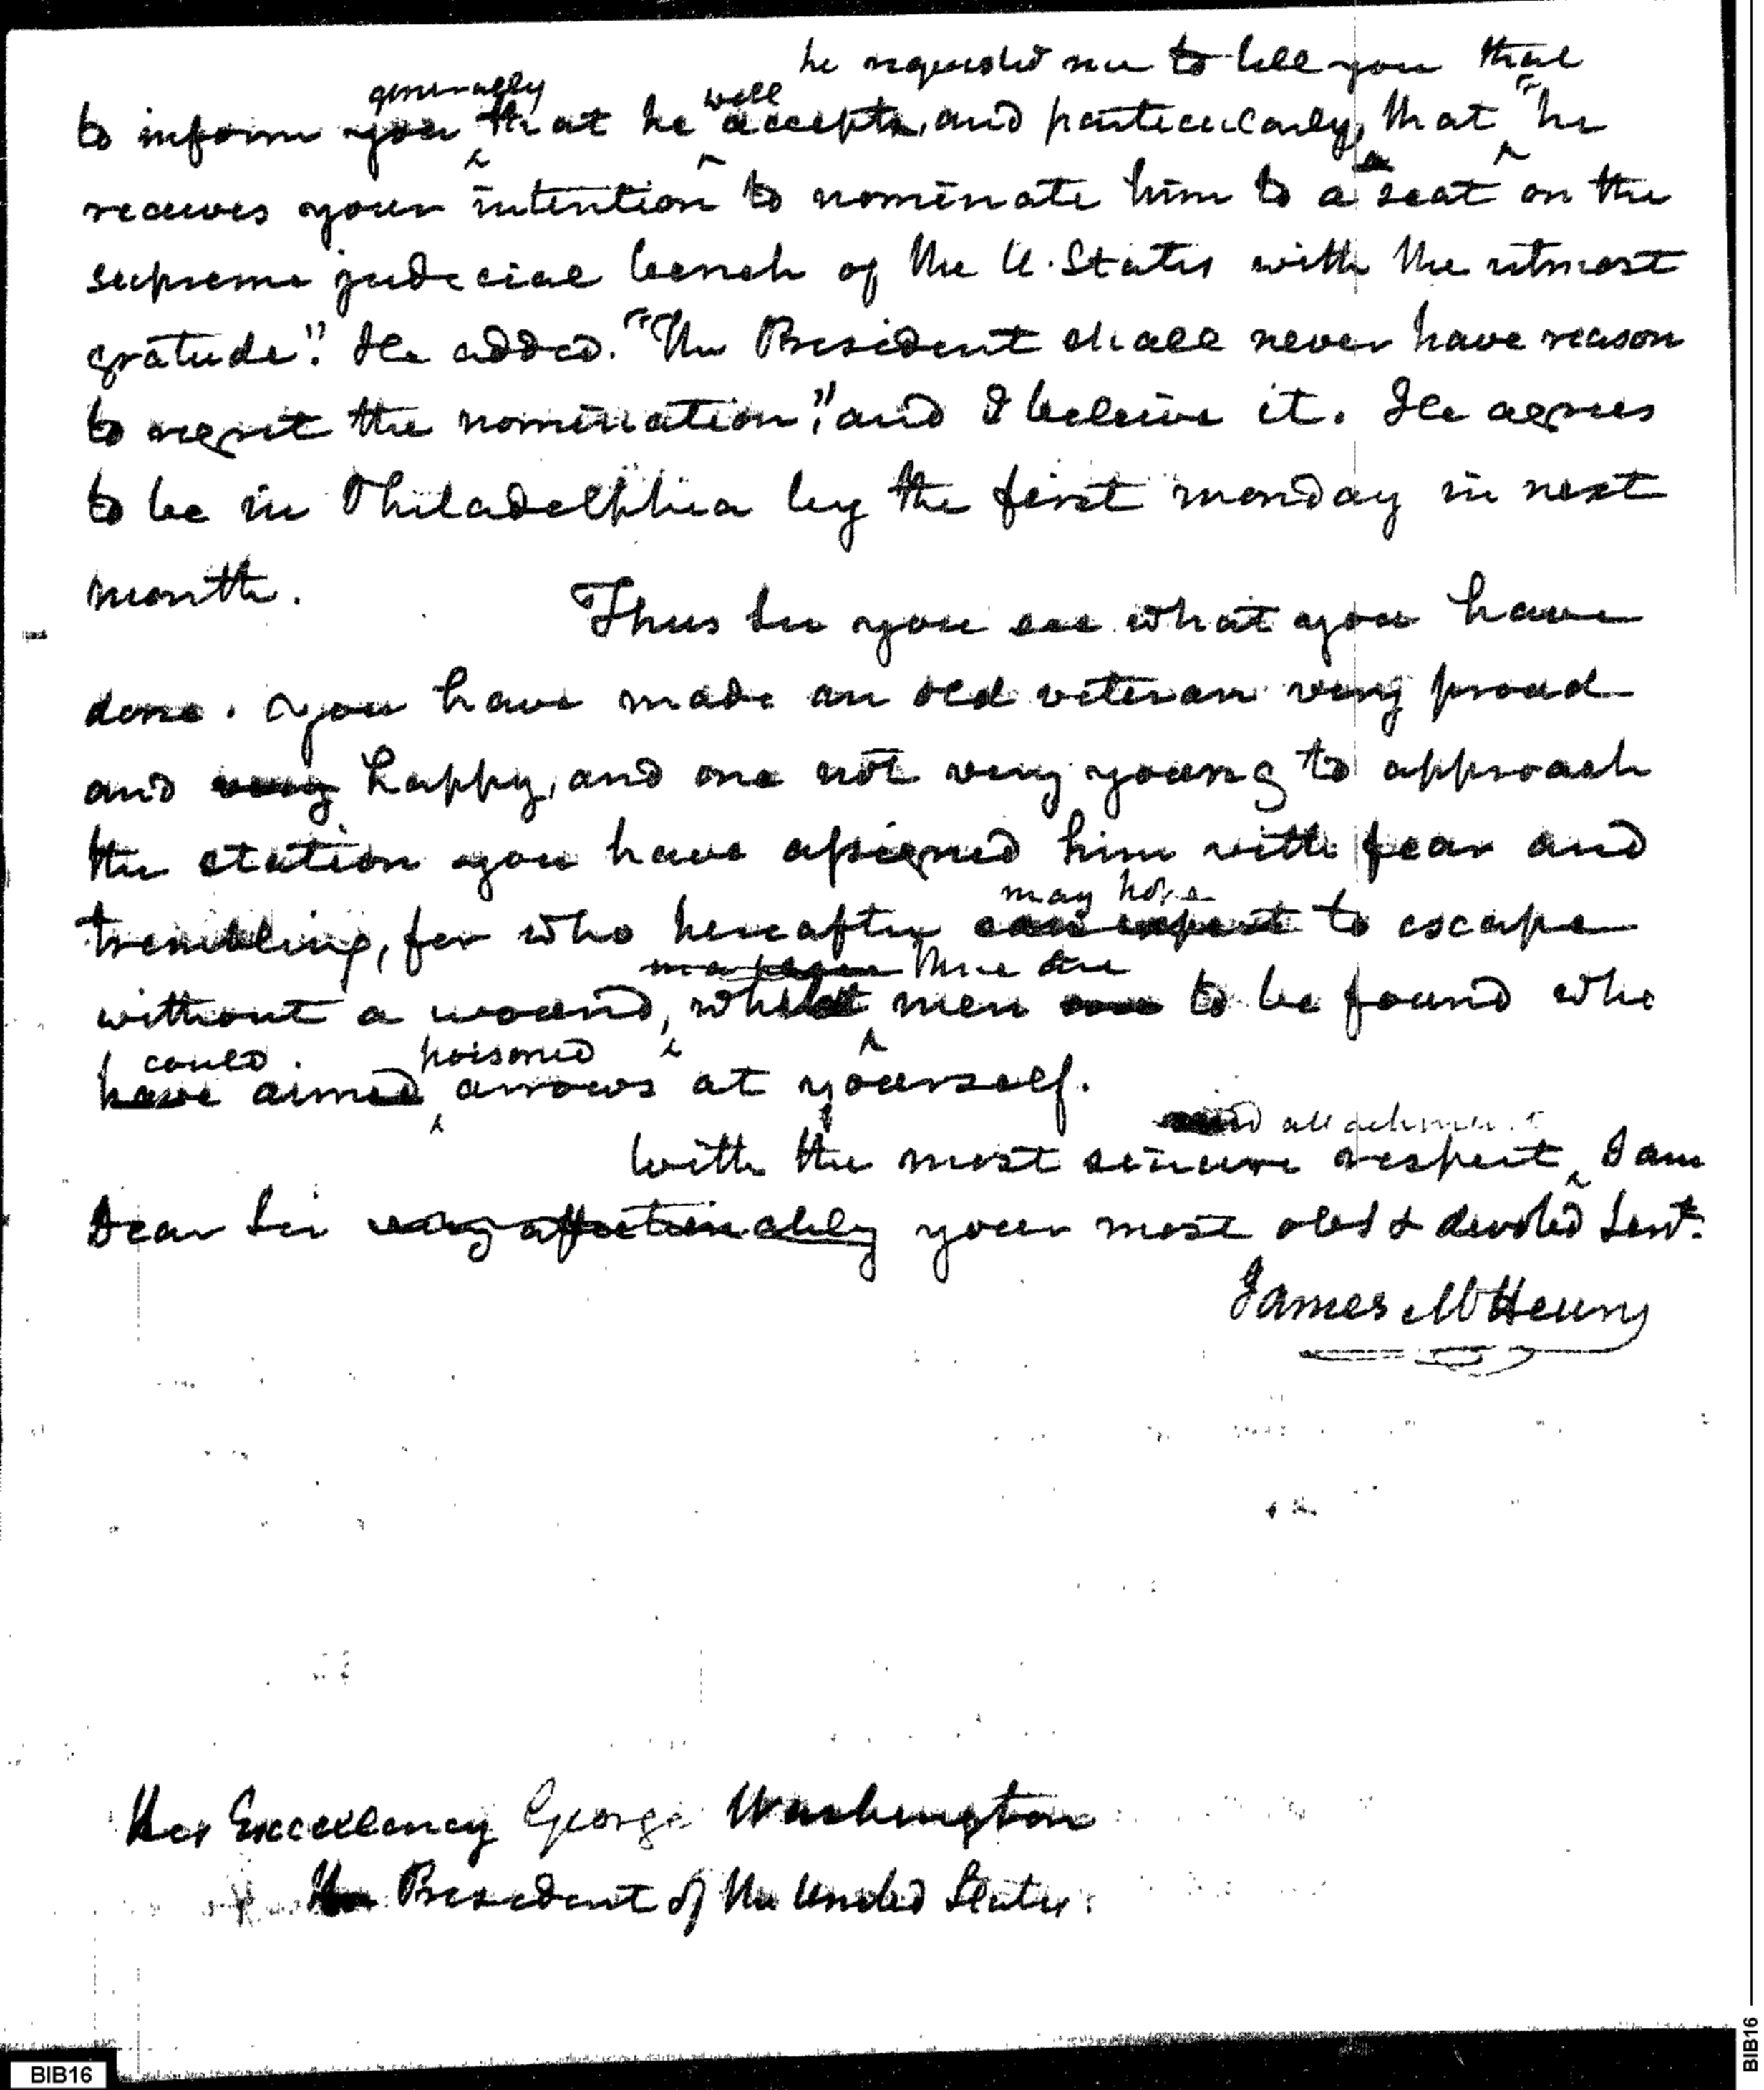 he requested me to tell you that
generally will
to inform you that he accepts, and particularly, that "he
a
receives your intention to nominate him to a seat on the
supreme judicial bench of the U. States with the utmost
gratude". He added. "The President shall never have reason
to regret the nomination", and I beleive it. He agrees
to be in Philadelphia by the first monday in next
month.
Thus Sir you see what you have
done. You have made an old veteran very proud
and very happy, and one not very young to approach
the station you have assigned him with fear and
may hope
trembling, for who hereafter can expect to escape
there are
without a wound, whilst men to be found who
could poisoned
have aimed arrows at yourself.
and attachment
With the most sincere respect, I am
Dear Sir very affectionately your most obd & devoted Servt.
James McHenry
His Excellency George Washington
the President of the United States.
BIB16
BIB16